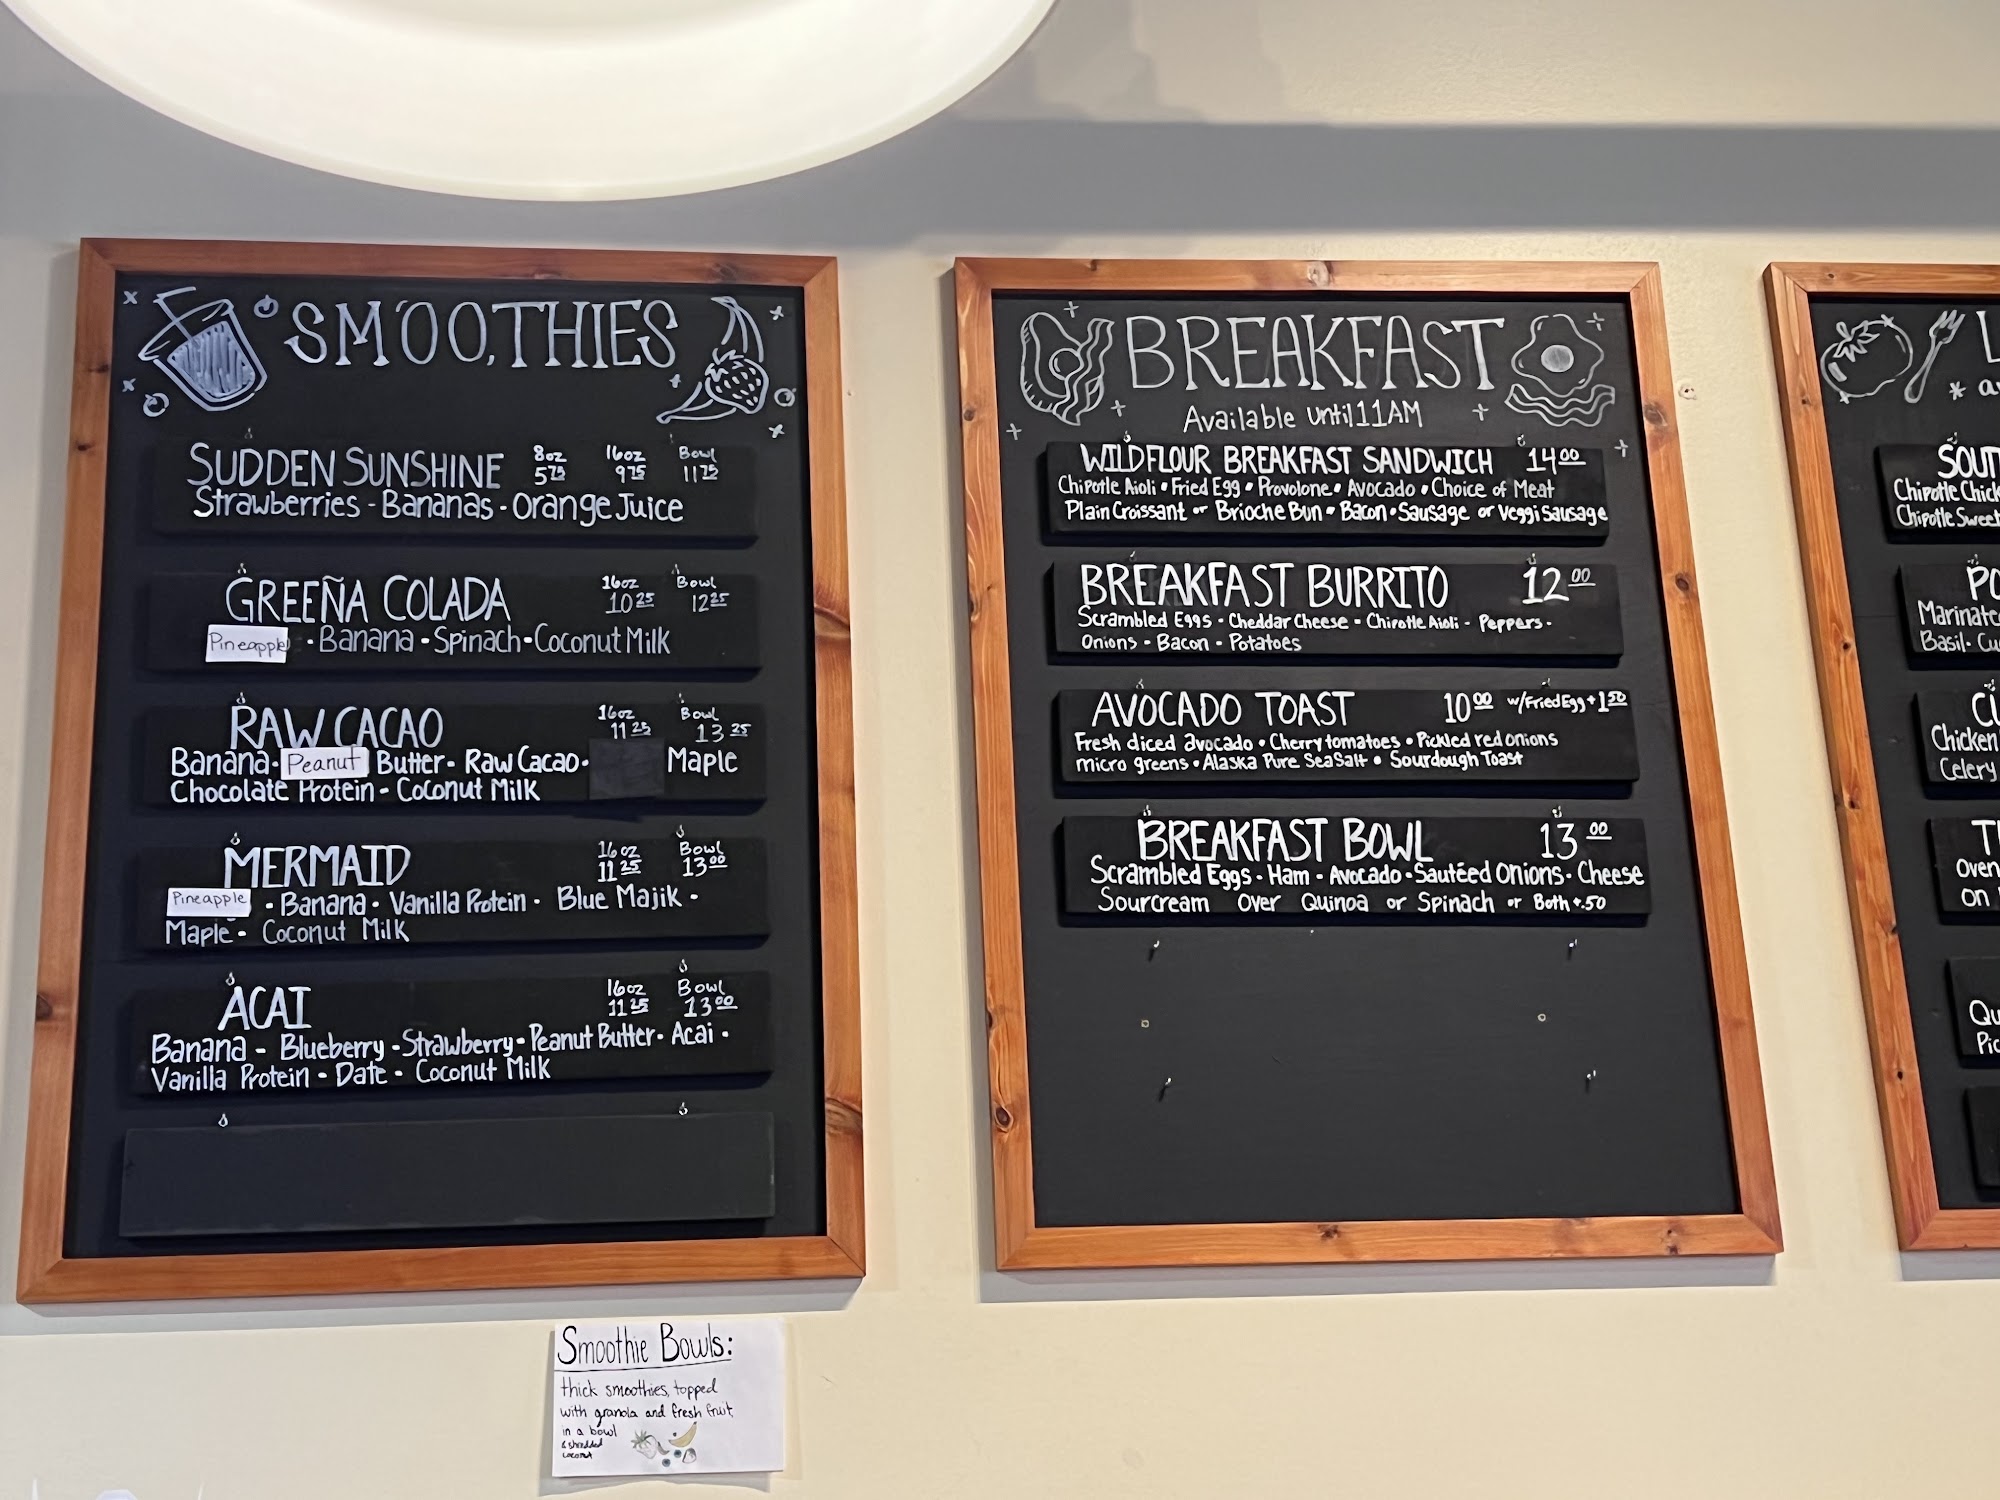 SMOOTHIES
SUDDEN SUNSHINE 8oz 5.75 16oz 9.75 Bowl 11.75
Strawberries - Bananas - Orange Juice
GREEÑA COLADA 16oz 10.25 Bowl 12.25
Pineapple • Banana • Spinach • Coconut Milk
RAW CACAO 16oz 11.25 Bowl 13.25
Banana • Peanut Butter • Raw Cacao • Maple
Chocolate Protein • Coconut Milk
MERMAID 16oz 11.25 Bowl 13.00
Pineapple • Banana • Vanilla Protein • Blue Majik •
Maple • Coconut Milk
ACAI 16oz 11.25 Bowl 13.00
Banana - Blueberry • Strawberry • Peanut Butter • Acai •
Vanilla Protein • Date • Coconut Milk
Smoothie Bowls:
thick smoothies, topped
with granola and fresh fruit,
in a bowl
& shredded
coconut
BREAKFAST
Available until 11AM
WILDFLOUR BREAKFAST SANDWICH 14.00
Chipotle Aioli • Fried Egg • Provolone • Avocado • Choice of Meat
Plain Croissant or Brioche Bun • Bacon • Sausage or Veggi Sausage
BREAKFAST BURRITO 12.00
Scrambled Eggs - Cheddar Cheese - Chipotle Aioli - Peppers -
Onions - Bacon - Potatoes
AVOCADO TOAST 10.00 w/Fried Egg + 1.50
Fresh diced avocado • Cherry tomatoes • Pickled red onions
micro greens • Alaska Pure Sea Salt • Sourdough Toast
BREAKFAST BOWL 13.00
Scrambled Eggs • Ham • Avocado • Sautéed Onions • Cheese
Sourcream Over Quinoa or Spinach or Both +.50
L
* a
SOUT
Chipotle Chick
Chipotle Sweet
PO
Marinate
Basil • Cu
Chicken
Celery
T
Oven
on
Qu
Pic